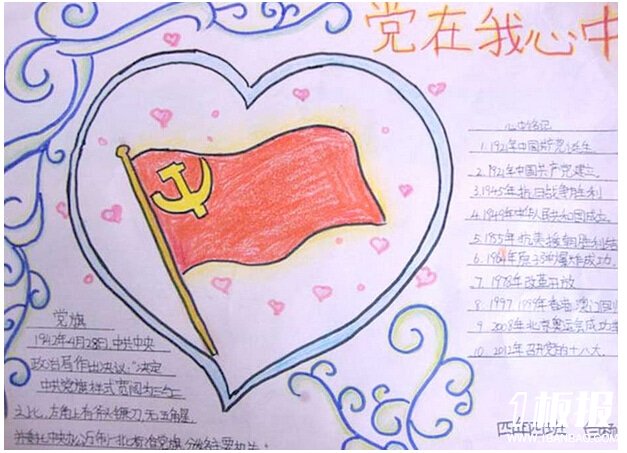 党在我心中
心中铭记
1. 1921年中国共产党诞生
2. 1921年中国共产党建立.
3. 1945年抗日战争胜利
4. 1949年中华人民共和国成立.
5. 1955年抗美援朝胜利结
6. 1964年原子弹爆炸成功.
7. 1978年改革开放
8. 1997 1999年香港 澳门回归
9. 2008年北京奥运会成功举
10. 2012年召开党的十八大.
党旗
1942年4月28日,中共中央
政治局作出决议:"决定
中共党旗样式宽阔为三与二
之比,左角上有斧头镰刀,无五角星
并委托中央办公厅
四年
板报